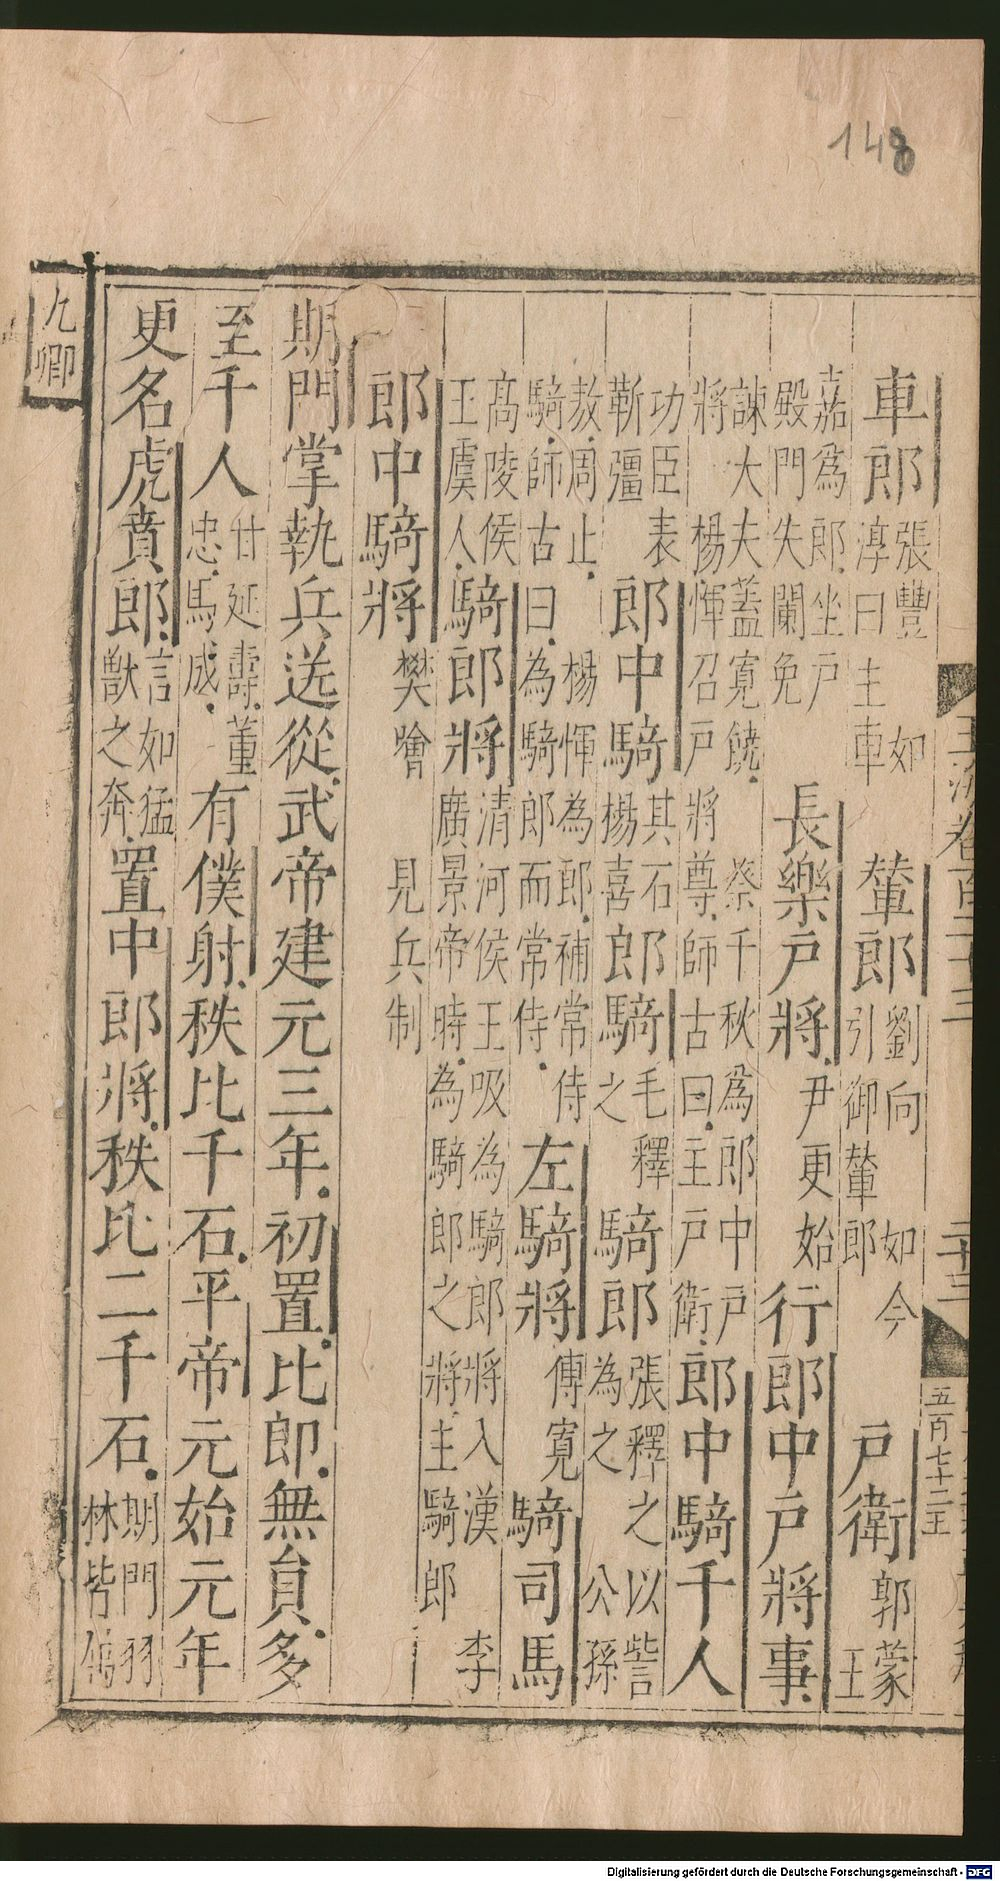 148
玉海卷百二十三 二十三 五百七十二 王
車郎 張豐 如 淳曰主車 輦郎 劉向 如今 引御輦郎 戶衛 郭蒙 王
嘉爲郎坐戶 殿門失闌免 長樂戶將 尹更始 行郎中戶將事
諫大夫蓋寬饒 蔡千秋爲郎中戶 將 楊惲召戶將尊師古曰主戶衛 郎中騎千人
功臣表 靳彊 郎中騎 其石 楊喜 郎騎 毛釋 之 騎郎 張釋之以訾 為之 公孫
敖周止 騎師古曰 楊惲為郎補常侍 為騎郎而常侍 左騎將 傅寬 騎司馬
髙陵侯 王虞人 騎郎將 清河侯王吸為騎郎將入漢 李 廣景帝時為騎郎之將主騎郎
郎中騎將 樊噲 見兵制
期門掌執兵送從武帝建元三年初置比郎無員多
至千人 甘延壽董 忠馬成 有僕射秩比千石平帝元始元年
更名虎賁郎 言如猛 獸之奔 置中郎將秩比二千石 期門羽 林皆屬
九卿
Digitalisierung gefördert durch die Deutsche Forschungsgemeinschaft - DFG